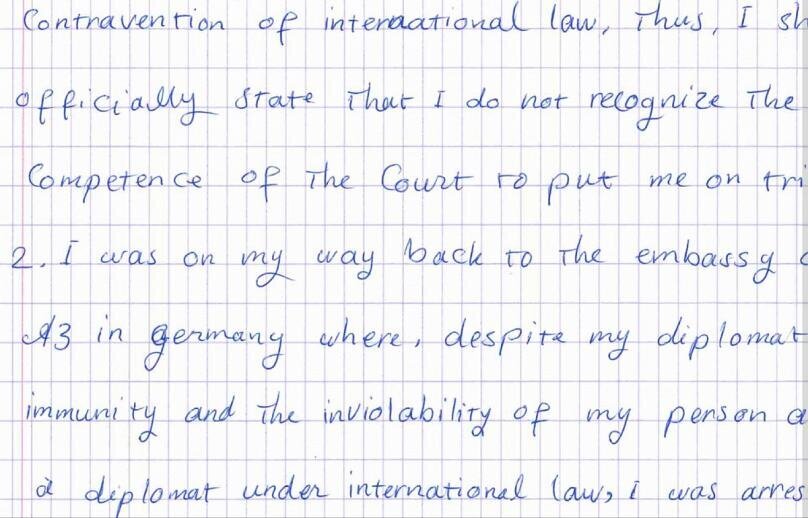 Contravention of internaational law, Thus, I sh
officially state that I do not recognize The
Competence of The Court to put me on tri
2. I was on my way back to The embassy
A3 in germany where, despite my diplomat
immunity and The inviolability of my person a
a diplomat under international law, i was arres